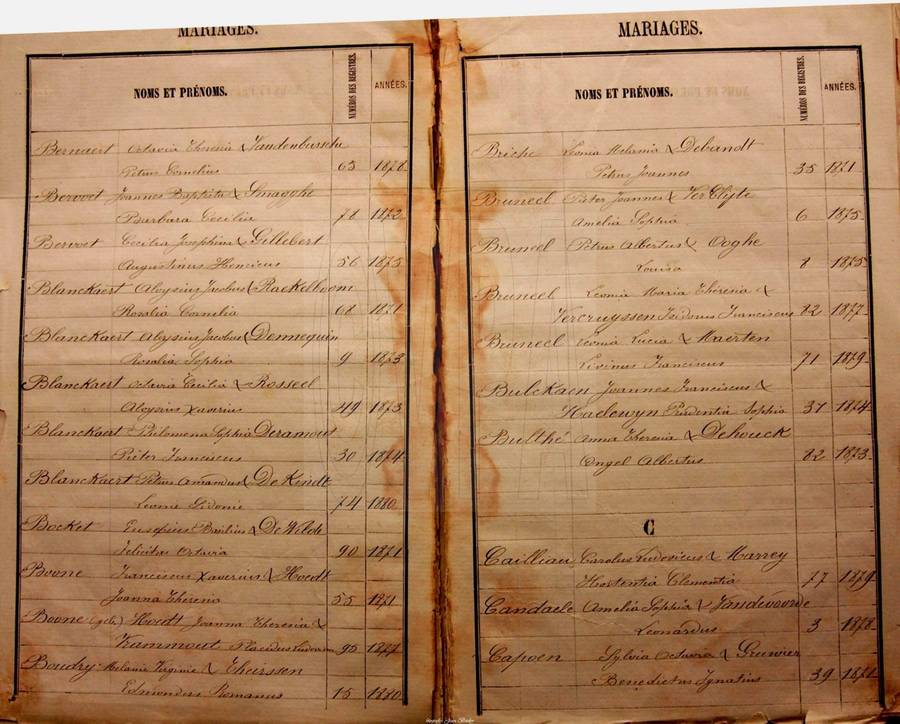 MARIAGES.
NOMS ET PRÉNOMS. NUMÉROS DES REGISTRES. ANNÉES.
Bernaert Octavia Theresia & Vandenbussche
Petrus Cornelius 63 1878
Bervoet Joannes Baptista & Smagghe
Barbara Cecilia 78 1872
Bervoet Cecilia Josephina & Gillebert
Augustinus Henricus 56 1875
Blanckaert Aloysius Jacobus & Raekelboom
Rosalia Cornelia 68 1871
Blanckaert Aloysius Jacobus & Demnequin
Rosalia Sophia 9 1873
Blanckaert Octavia Cecilia & Rosseel
Aloysius Xaverius 49 1873
Blanckaert Philomena Sophia Deramout
Pieter Franciscus 30 1874
Blanckaert Petrus Amandus & De Kindt
Leonie Sidonie 74 1880
Bocket Eusepius Basilius & De Wilde
Felicitas Octavia 90 1871
Boone Franciscus Xaverius & Hoedt
Joanna Theresia 55 1871
Boone Hoedt Joanna Theresia &
Vrammout Placidus 95 1877
Boudry Melanie Virginie & Theirssen
Edmondus Romanus 15 1880
MARIAGES.
NOMS ET PRÉNOMS. NUMÉROS DES REGISTRES. ANNÉES.
Briche Leonia Melania & Debandt
Petrus Joannes 35 1871
Bruneel Pieter Joannes & Ver Clyte
Amelia Sophia 6 1875
Bruneel Petrus Albertus & Ooghe
Louisa 8 1875
Bruneel Leonia Maria Theresia &
Vercruyssen Isidorus Franciscus 82 1877
Bruneel Leonia Lucia & Maerten
Livinus Franciscus 71 1879
Bulckaen Joannes Franciscus &
Haelewyn Prudentia Sophia 37 1874
Bulthé Anna Theresia & Dehouck
Engel Albertus 82 1873
C
Cailliau Carolus Ludovicus & Marrey
Hortentia Clementia 77 1879
Candaele Amelia Sophia & Vandevoorde
Leonardus 3 1878
Capoen Sylvia Octavia & Grunvier
Benedictus Ignatius 39 1871